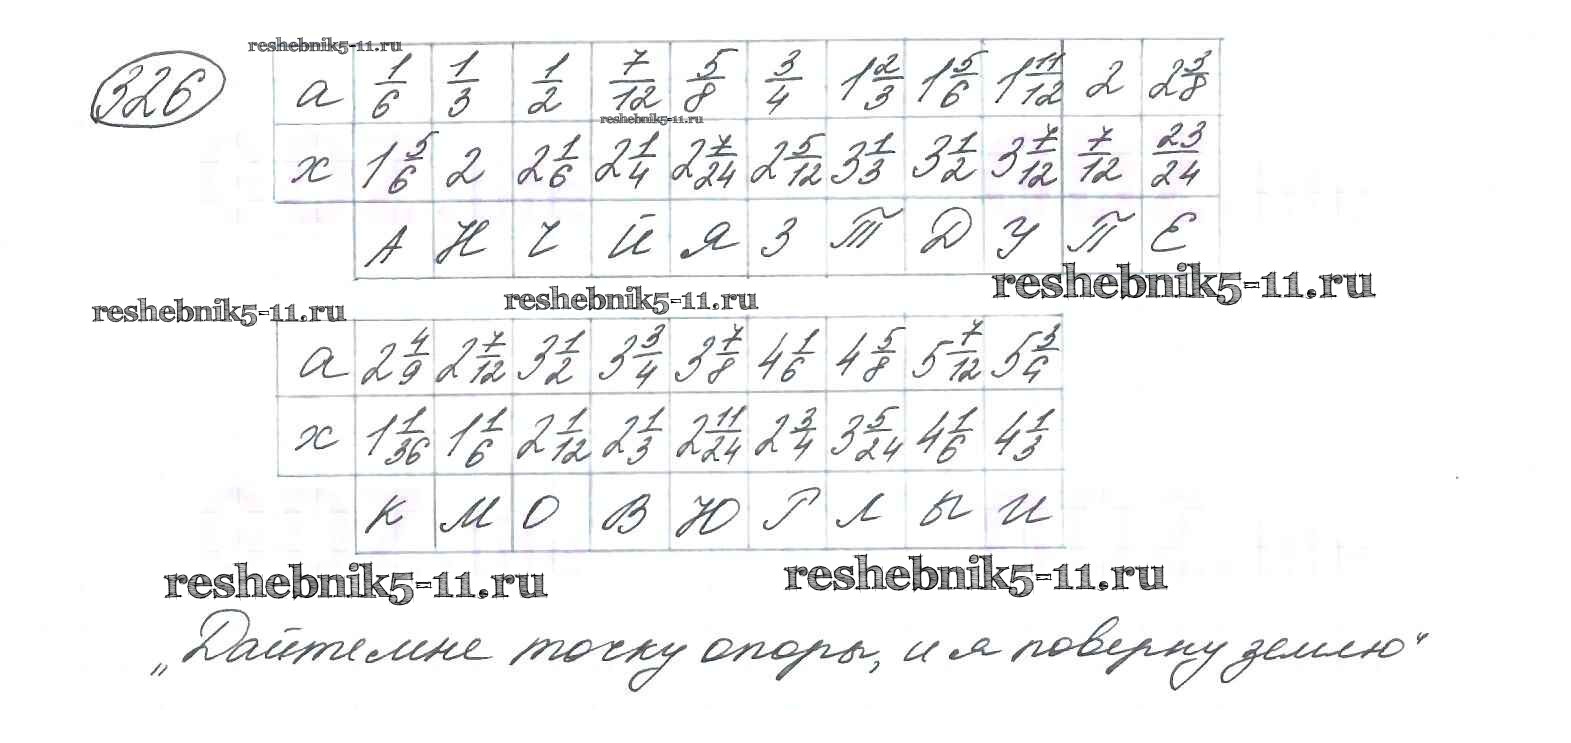 reshebnik5-11.ru
326
a 1/6 1/3 1/2 7/12 5/8 3/4 1 2/3 1 5/6 1 11/12 2 2 3/8
reshebnik5-11.ru
x 1 5/6 2 2 1/6 2 1/4 2 7/24 2 5/12 3 1/3 3 1/2 3 7/12 7/12 23/24
А Н Ч Й Я З Т Д У П Е
reshebnik5-11.ru
reshebnik5-11.ru
reshebnik5-11.ru
a 2 4/9 2 7/12 3 1/2 3 3/4 3 7/8 4 1/6 4 5/8 5 7/12 5 3/4
x 1 1/36 1 1/6 2 1/12 2 1/3 2 11/24 2 3/4 3 5/24 4 1/6 4 1/3
К М О В Ю Р Л Ы И
reshebnik5-11.ru
reshebnik5-11.ru
„Дайте мне точку опоры, и я поверну землю“